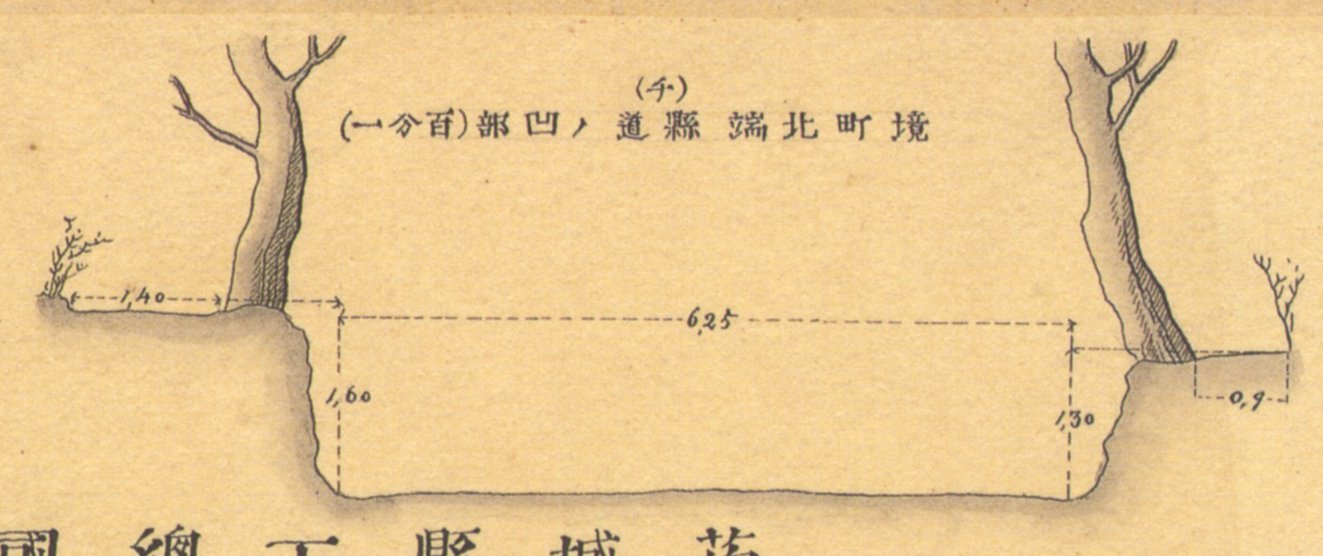 (チ)
境町北端縣道ノ凹部(百分一)
1,40
6,25
1,60
1,30
0,9
茨城縣下總國